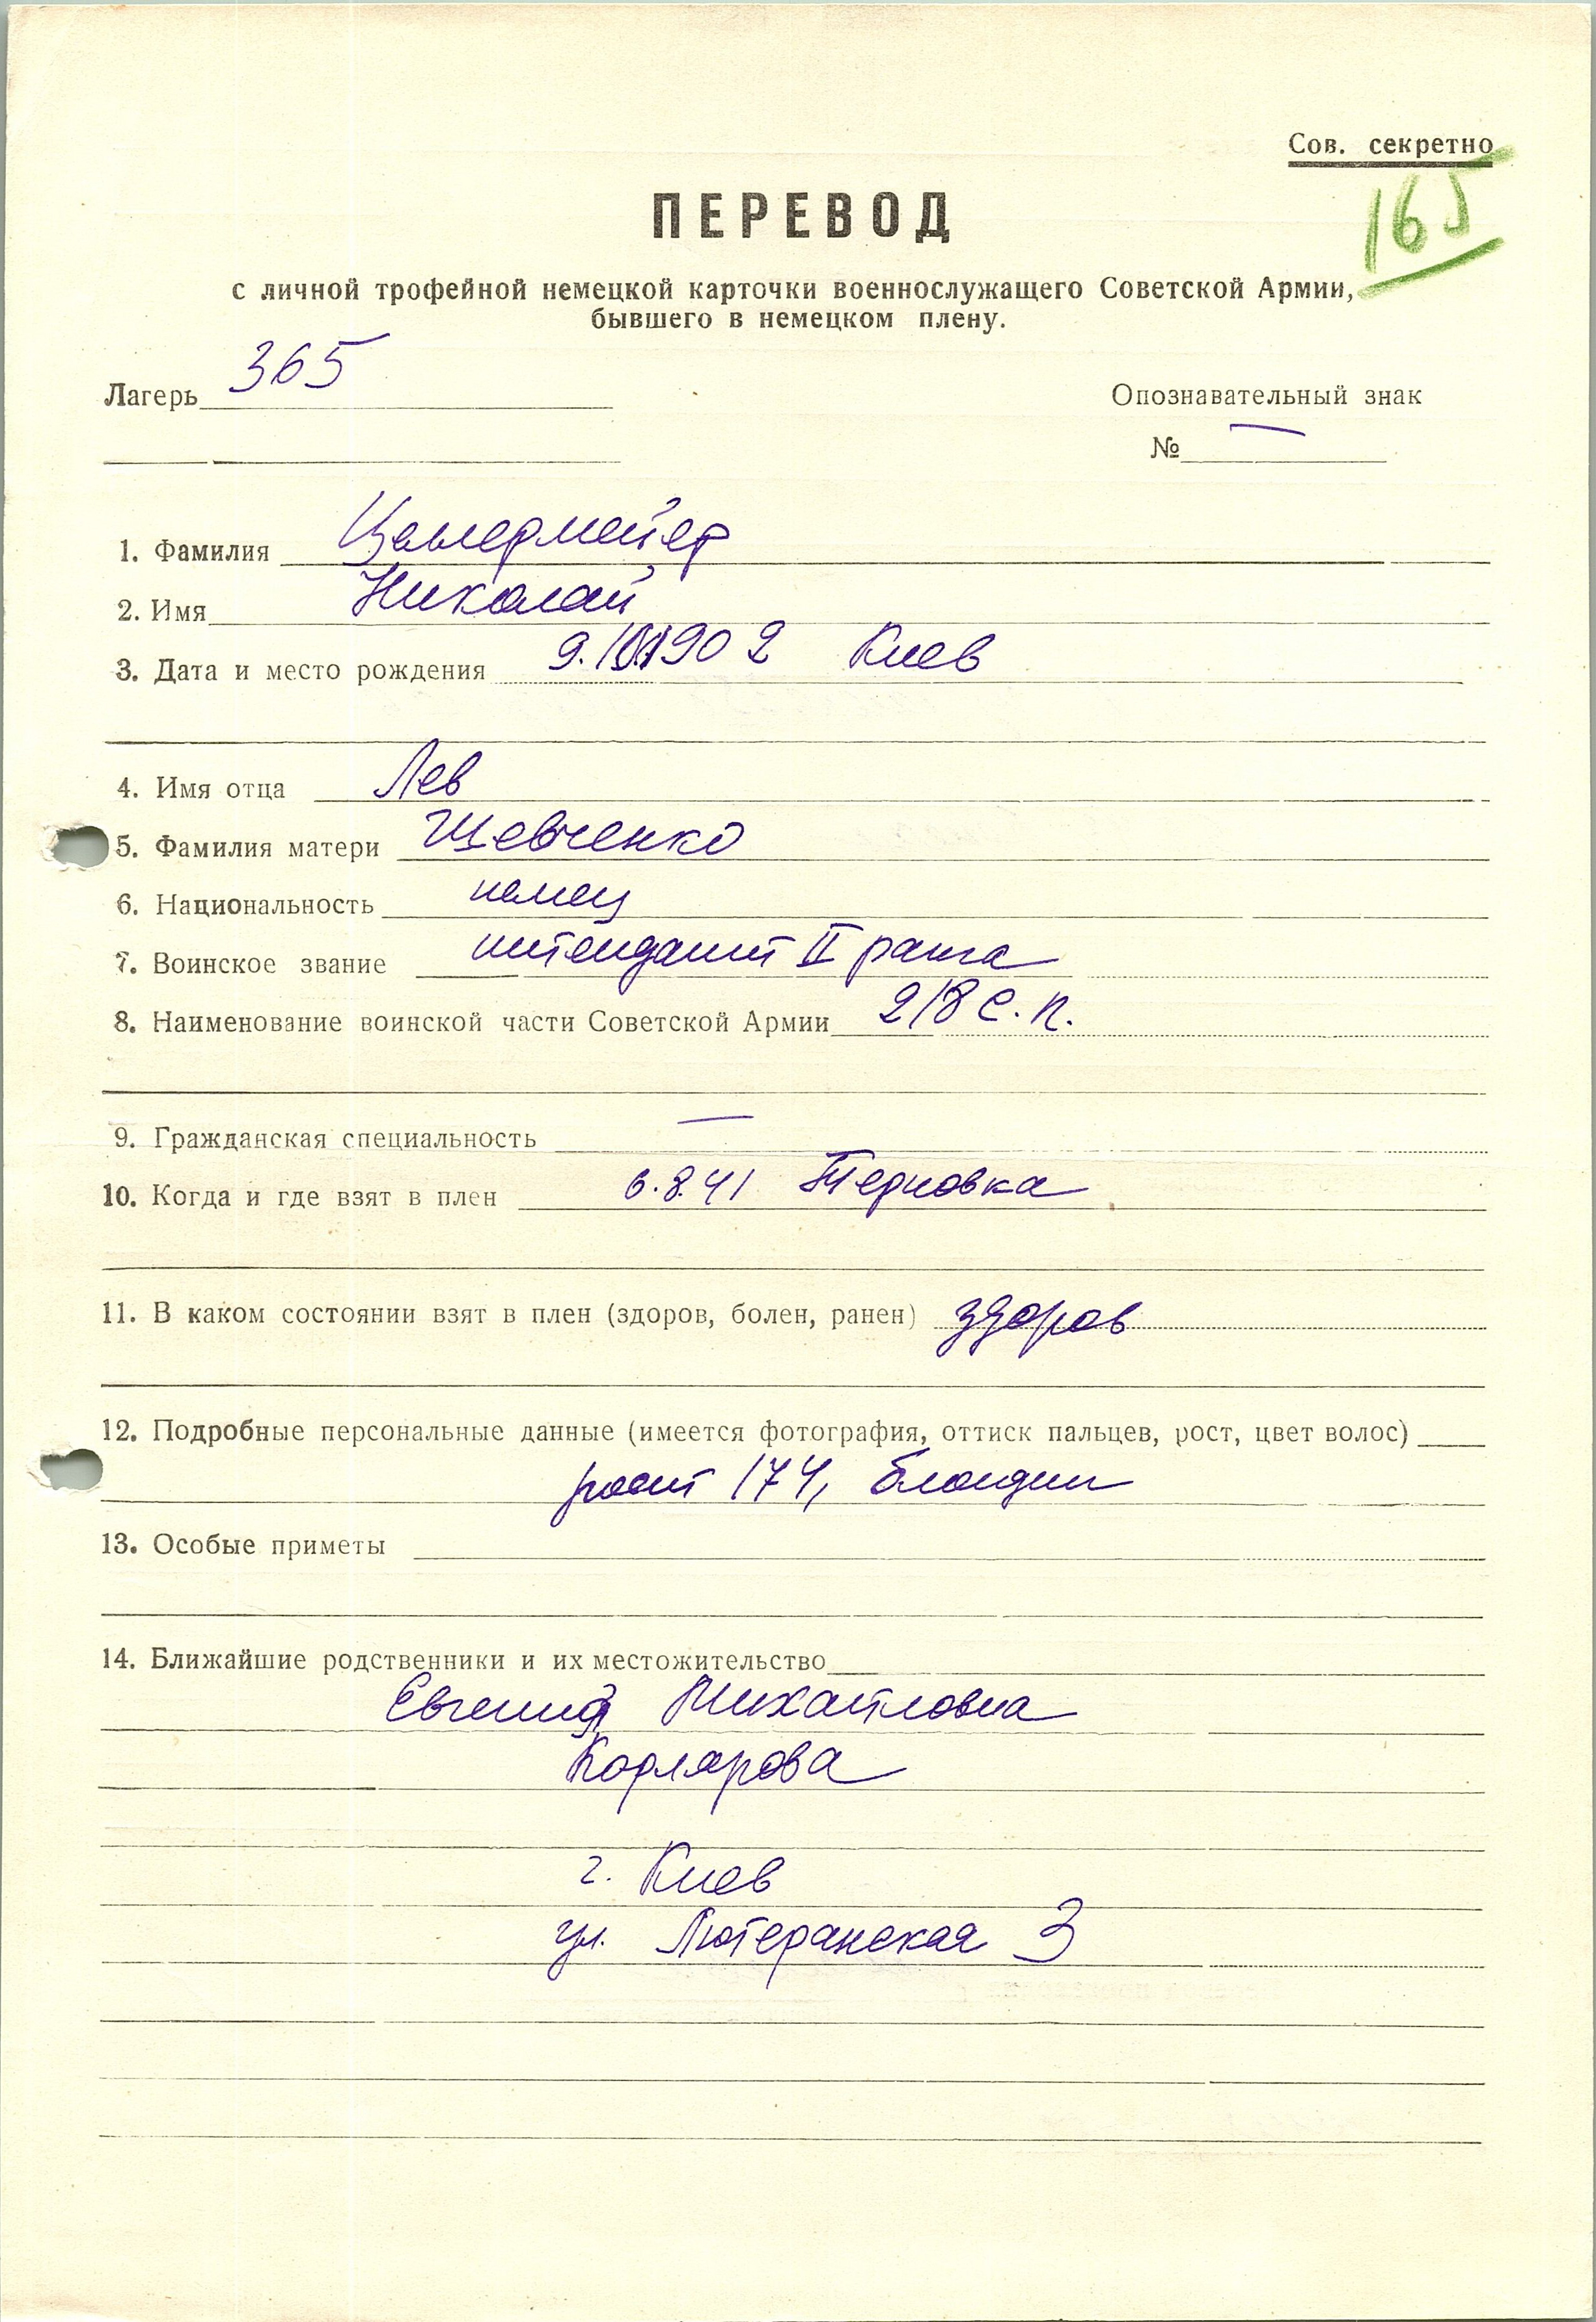 Сов. секретно
165
ПЕРЕВОД
с личной трофейной немецкой карточки военнослужащего Советской Армии,
бывшего в немецком плену.
Лагерь 365
Опознавательный знак
№ —
1. Фамилия
2. Имя Николай
3. Дата и место рождения Киев
4. Имя отца Лев
5. Фамилия матери Шевченко
6. Национальность немец
7. Воинское звание интендант II ранга
8. Наименование воинской части Советской Армии 218 с. п.
9. Гражданская специальность —
10. Когда и где взят в плен 6.8.41 Терновка
11. В каком состоянии взят в плен (здоров, болен, ранен) здоров
12. Подробные персональные данные (имеется фотография, оттиск пальцев, рост, цвет волос)
рост 174, блондин
13. Особые приметы
14. Ближайшие родственники и их местожительство
Евгения Михайловна
г. Киев
ул. Лютеранская 3